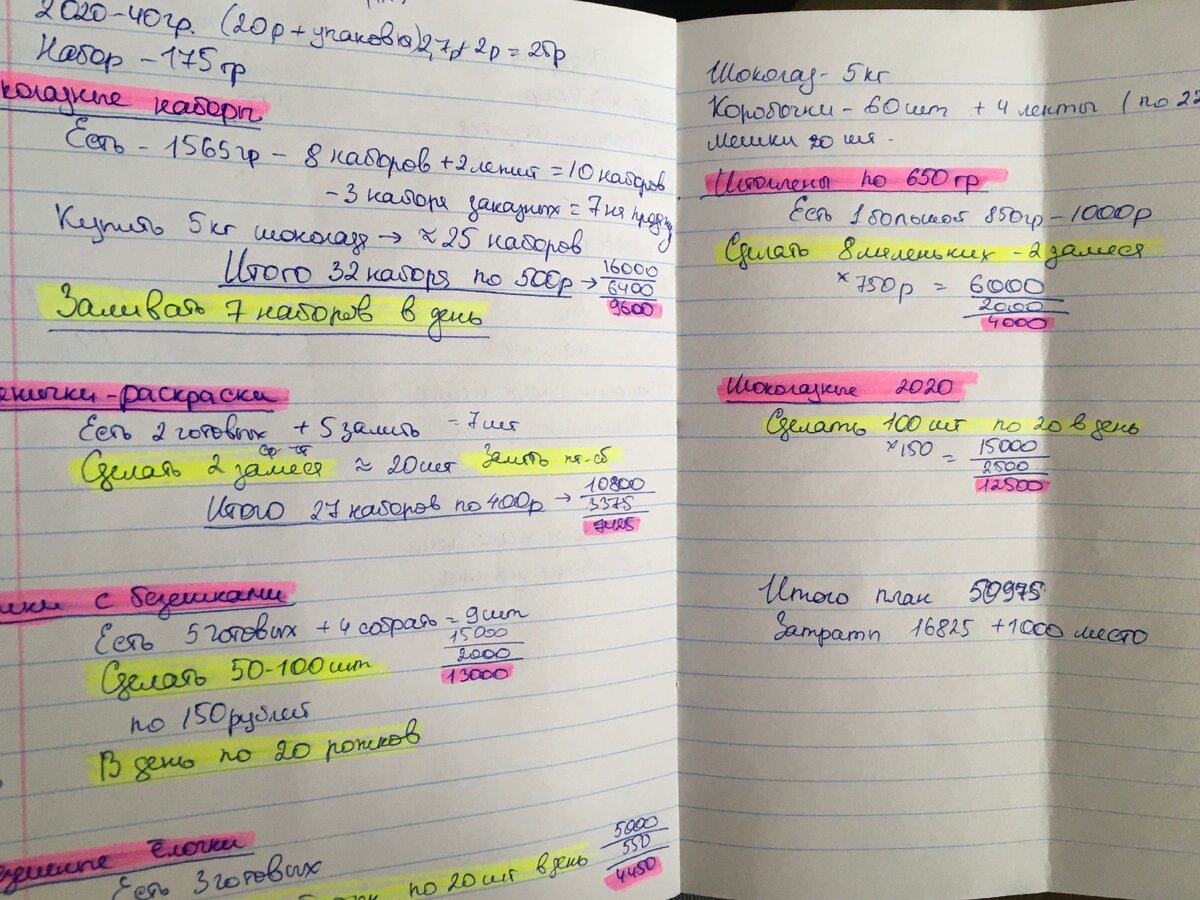 2020-40гр. (20р + упаковка) 2,7р + 2р = 25р
Набор - 175 гр
коладные наборы
Есть - 1565гр - 8 наборов + 2 лепит = 10 наборов
- 3 набора заказных = 7 на продажу
Купить 5 кг шоколада → ≈ 25 наборов
Итого 32 набора по 500р → 16000
6400
9600
Заливать 7 наборов в день
янички-раскраски
Есть 2 готовых + 5 залить = 7 шт
ср-чт
Сделать 2 замеса ≈ 20 шт Залить пт-сб
Итого 27 наборов по 400р → 10800
3375
7425
с безешками
Есть 5 готовых + 4 собрать = 9 шт
15000
2000
13000
Сделать 50-100 шт
по 150 рублей
В день по 20 рожков
ёлочки
Есть 3 готовых
по 20 шт в день
5000
550
4450
Шоколад - 5 кг
Коробочки - 60 шт + 4 ленты (по 22
мешки 20 шт.
Штоллены по 650 гр
Есть 1 большой 850гр - 1000р
Сделать 8 маленьких - 2 замеса
× 750р = 6000
2000
4000
Шоколадные 2020
Сделать 100 шт по 20 в день
×150 = 15000
2500
12500
Итого план 50975
Затраты 16825 + 1000 место